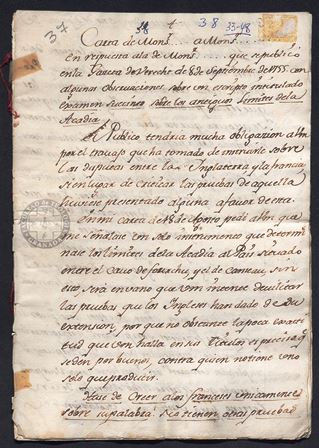 37
38
38
33-48
Carta de Mons.r ... a Mons.r ...
en respuesta a la de Mons.r ... que se publicó
en la Gazeta de Utreche de 8 de Septiembre de 1755. con
algunas observaciones sobre un escripto intitulado
examen sucinto sobre los antiguos limites de la
Acadia.
El Publico tendria mucha obligazion a Vm
por el travajo que ha tomado de instruirle sobre
las disputas entre la Inglaterra y la francia,
si en lugar de criticar las pruebas de aquella
huviese presentado alguna a favor de esta.
En mi carta de 18 de Agosto pedi a Vm que
me señalase un solo instrumento que determi-
nase los limites de la Acadia al Pais situado
entre el Cavo de y el de Canseau, sin
esto, será en vano que Vm intente devilitar
las pruebas que los Ingleses han dado de su
extension, por que no obstante la poca exacti-
tud que Vm halla en sus titulos es preciso q.e
se den por buenos, contra quien no tiene uno
solo que producir.
Hase de creer a los franceses unicamente
sobre su palabra? Si no tienen otras pruebas